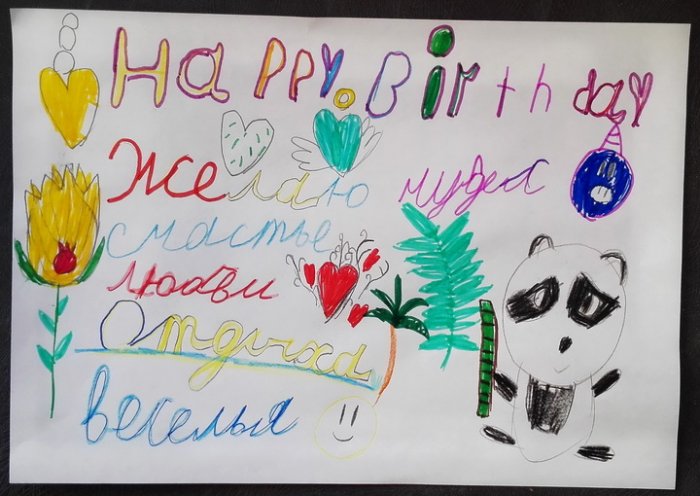 Happy Birthday
Желаю чудес
счастье
любви
Отдыха
веселья